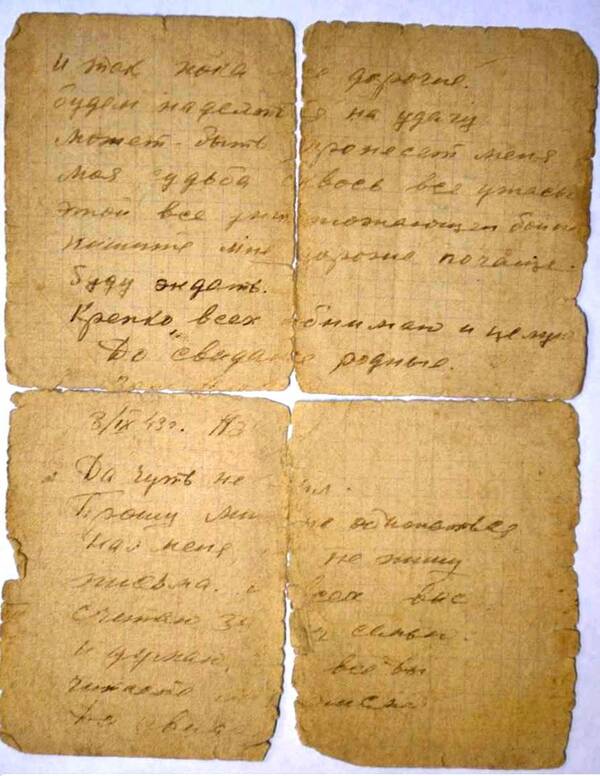 и так пока дорогие.
будем надеятся на удачу
может-быть пронесет меня
моя судьба сквось все ужасы
этой все уничтожающей войны
пишите мне дорогие почаще.
буду ждать.
Крепко всех обнимаю и целую
До свидание родные.
8/IX 43г.
Да чуть не
Прошу не обижаться
на меня, не пишу
письма. всех вас
считаю семьи.
и думаю, все вы
читаете